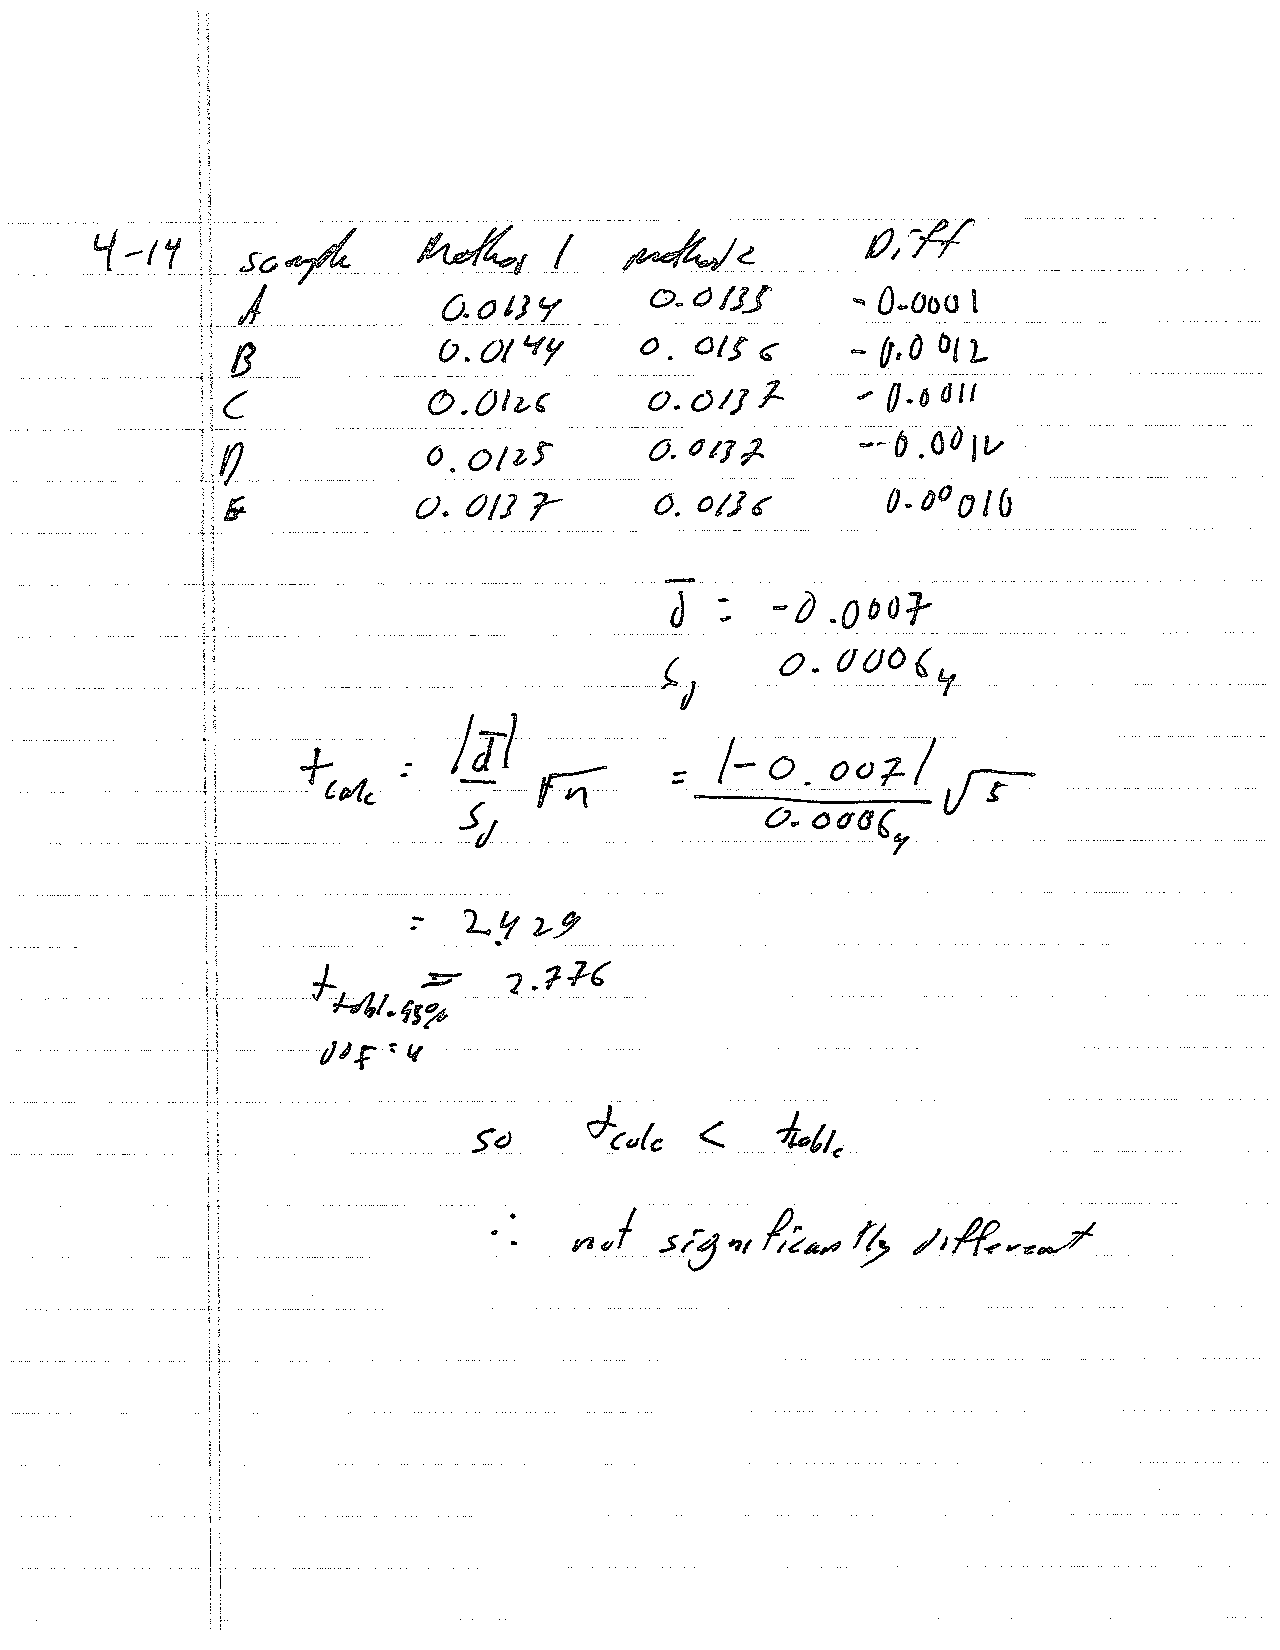 4-14 sample Method 1 method 2 Diff
A 0.0134 0.0135 -0.0001
B 0.0144 0.0156 -0.0012
C 0.0126 0.0137 -0.0011
D 0.0125 0.0137 -0.0012
E 0.0137 0.0136 0.00010
d̄ = -0.0007
s_d 0.0006₄
t_calc = |d̄| / s_d √n = |-0.007| / 0.0006₄ √5
= 2.429
t_table 95% = 2.776
DOF = 4
so t_calc < t_table
∴ not significantly different